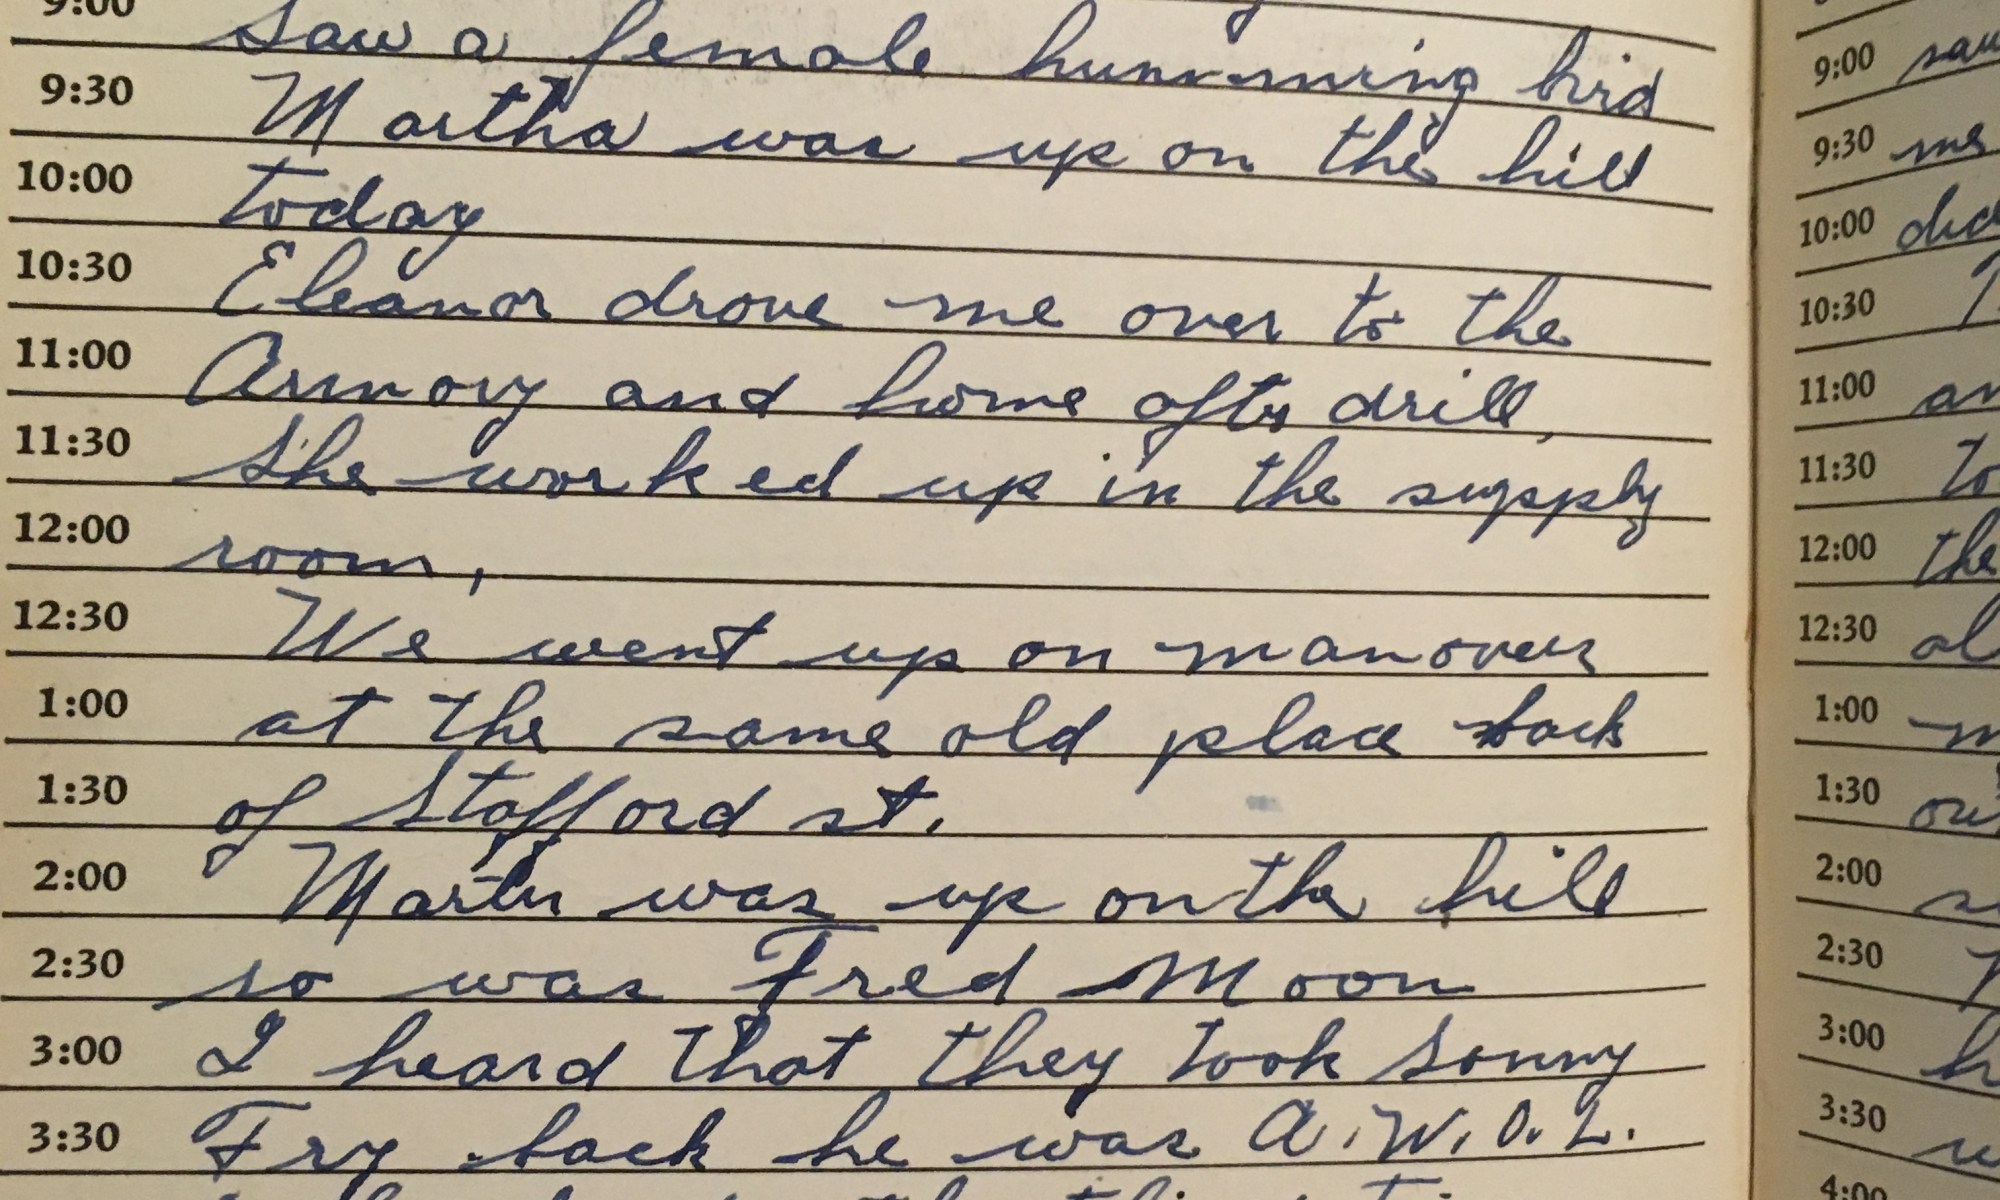 9:00 Saw a female hummming bird
9:30 Martha was up on the hill
10:00 today
10:30 Eleanor drove me over to the
11:00 Armory and home after drill,
11:30 She worked up in the supply
12:00 room,
12:30 We went up on manover
1:00 at the same old place back
1:30 of Stafford st.
2:00 was up on the hill
2:30 so was Fred Moon
3:00 I heard that they took Sonny
3:30 Fry back he was A.W.O.L.
9:00
9:30 me
10:00
10:30
11:00
11:30
12:00 the
12:30
1:00
1:30
2:00
2:30
3:00
3:30
4:00